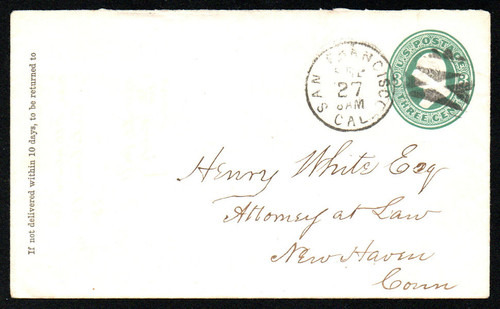 If not delivered within 10 days, to be returned to
SAN FRANCISCO
27
8AM
CAL.
U.S. POSTAGE
THREE CENTS
Henry White Esq
Attorney at Law
New Haven
Conn